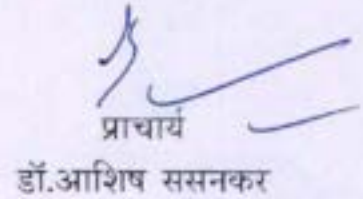 प्राचार्य
डॉ.आशिष ससनकर